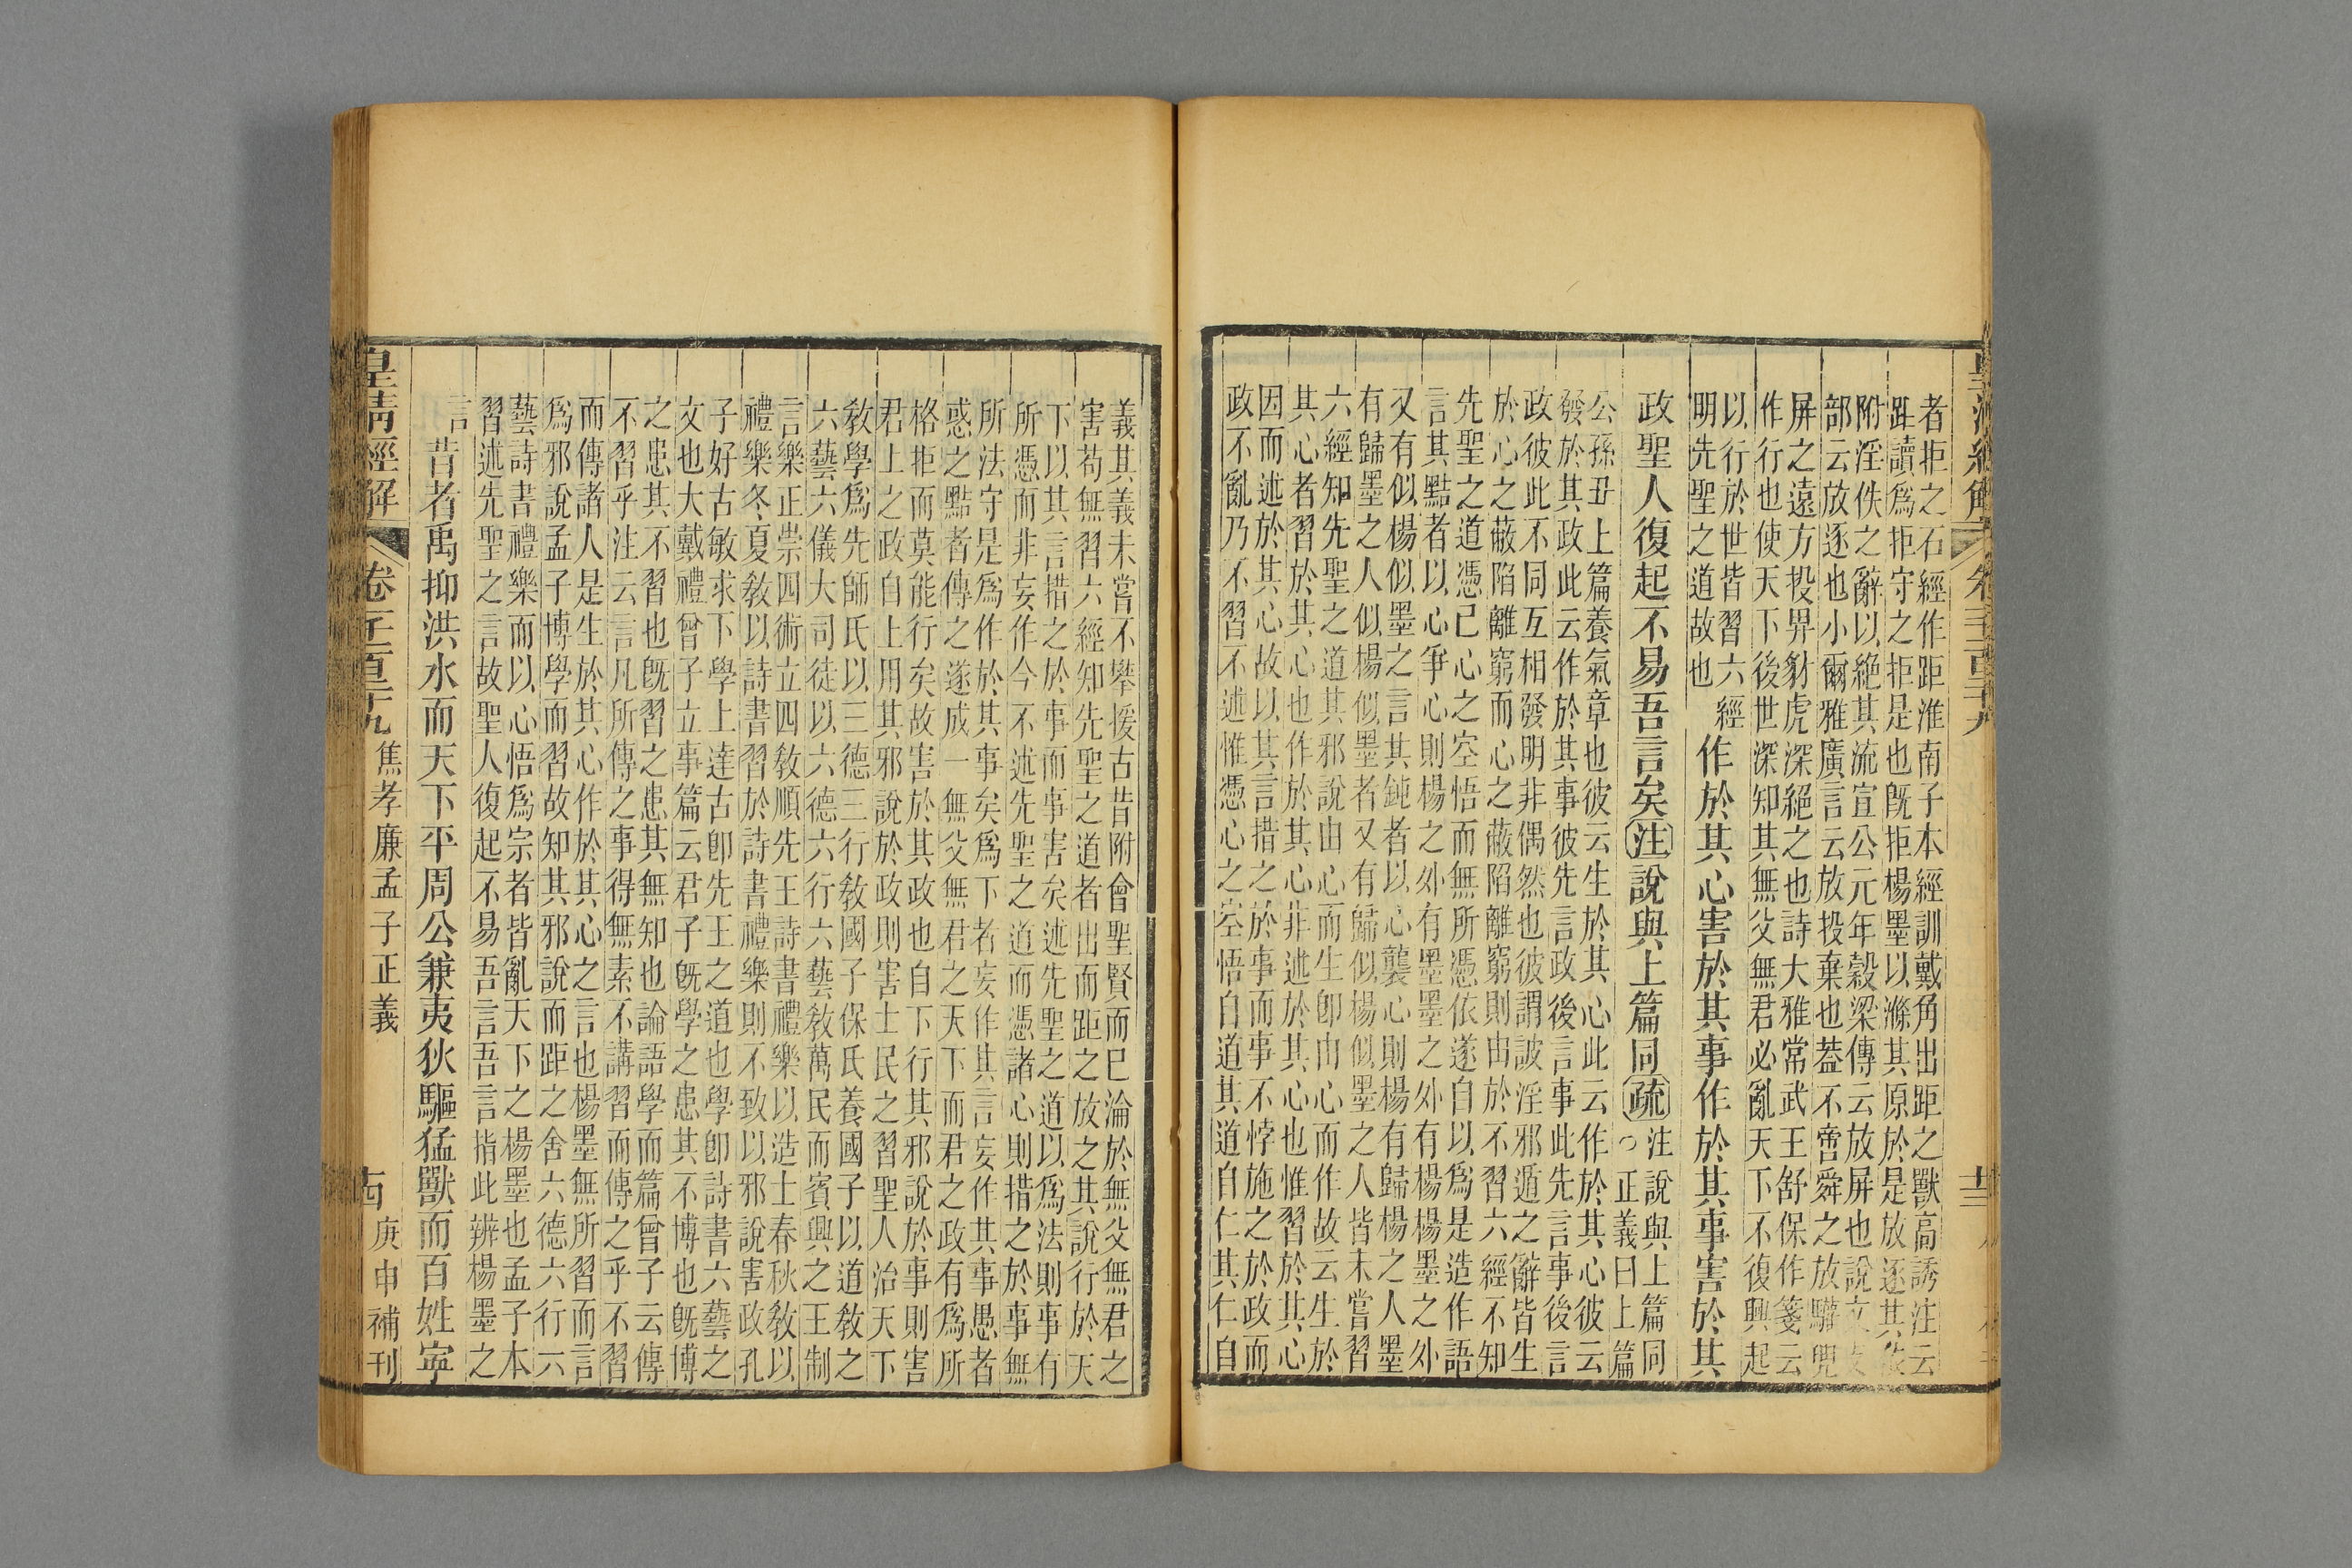 者拒之石經作距淮南子本經訓戴角出距之獸高誘注云
距讀爲拒守之拒是也旣拒楊墨以滌其原於是放逐其
附淫佚之辭以絕其流宣公元年穀梁傳云放屏也說文
部云放逐也小爾雅廣言云放投棄也葢不啻舜之放驩兜
屏之遠方投畀豺虎深絕之也詩大雅常武王舒保作箋云
作行也使天下後世深知其無父無君必亂天下不復興起
以行於世皆習六經
明先聖之道故也
作於其心害於其事作於其事害於其
政聖人復起不易吾言矣注說與上篇同疏
注說與上篇同
○正義曰上篇
公孫丑上篇養氣章也彼云生於其心此云作於其心彼云
發於其政此云作於其事彼先言政後言事此先言事後言
政彼此不同互相發明非偶然也彼謂詖淫邪遁之辭皆生
於心之蔽陷離窮而心之蔽陷離窮則由於不習六經不知
先聖之道憑己心之空悟而無所憑依遂自以爲是造作語
言其點者以心爭心則楊之外有墨墨之外有楊楊墨之外
又有似楊似墨之言其鈍者以心襲心則楊有歸楊之人墨
有歸墨之人似楊似墨者又有歸似楊似墨之人皆未嘗習
六經知先聖之道其邪說由心而生卽由心而作故云生於
其心者習於其心也作於其心非述於其心也惟習於其心
因而述於其心故以其言措之於事而事不悖施之於政而
政不亂乃不習不述惟憑心之空悟自道其道自仁其仁自
義其義未嘗不攀援古昔附會聖賢而已淪於無父無君之
害苟無習六經知先聖之道者出而距之放之其說行於天
下以其言措之於事而事害矣述先聖之道以爲法則事有
所憑而非妄作今不述先聖之道而憑諸心則措之於事無
所法守是爲作於其事矣爲下者妄作其言妄作其事愚者
惑之點者傳之遂成一無父無君之天下而君之政有爲所
格拒而莫能行矣故害於其政也自下行其邪說於事則害
君上之政自上用其邪說於政則害士民之習聖人治天下
敎學爲先師氏以三德三行敎國子保氏養國子以道敎之
六藝六儀大司徒以六德六行六藝敎萬民而賓興之王制
言樂正崇四術立四敎順先王詩書禮樂以造士春秋敎以
禮樂冬夏敎以詩書習於詩書禮樂則不致以邪說害政孔
子好古敏求下學上達古卽先王之道也學卽詩書六藝之
文也大戴禮曾子立事篇云君子旣學之患其不博也旣博
之患其不習也旣習之患其無知也論語學而篇曾子云傳
不習乎注云言凡所傳之事得無素不講習而傳之乎不習
而傳諸人是生於其心作於其心之言也楊墨無所習而言
爲邪說孟子博學而習故知其邪說而距之舍六德六行六
藝詩書禮樂而以心悟爲宗者皆亂天下之楊墨也孟子本
習述先聖之言故聖人復起不易吾言吾言指此辨楊墨之
言
昔者禹抑洪水而天下平周公兼夷狄驅猛獸而百姓寧
皇淸經解 卷一千一百二十九 焦孝廉孟子正義 十四 庚申補刊